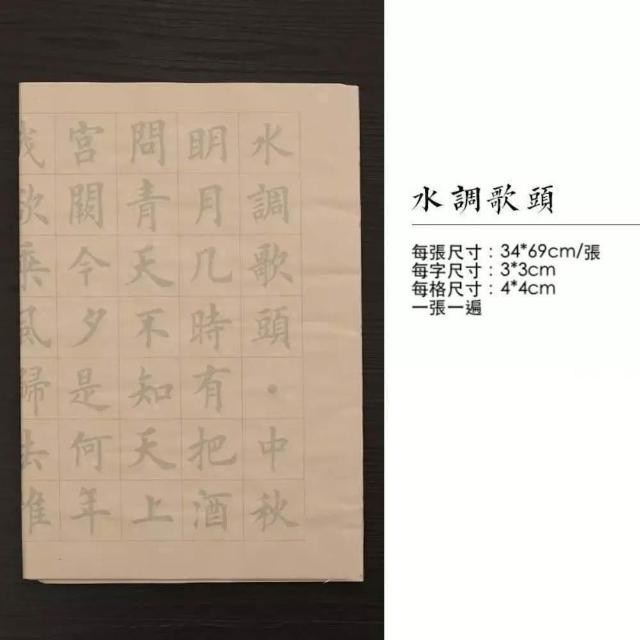 水調歌頭·中秋
明月几時有把酒
問青天不知天上
宮闕今夕是何年
我欲乘風歸去
水調歌頭
每張尺寸：34*69cm/張
每字尺寸：3*3cm
每格尺寸：4*4cm
一張一遍